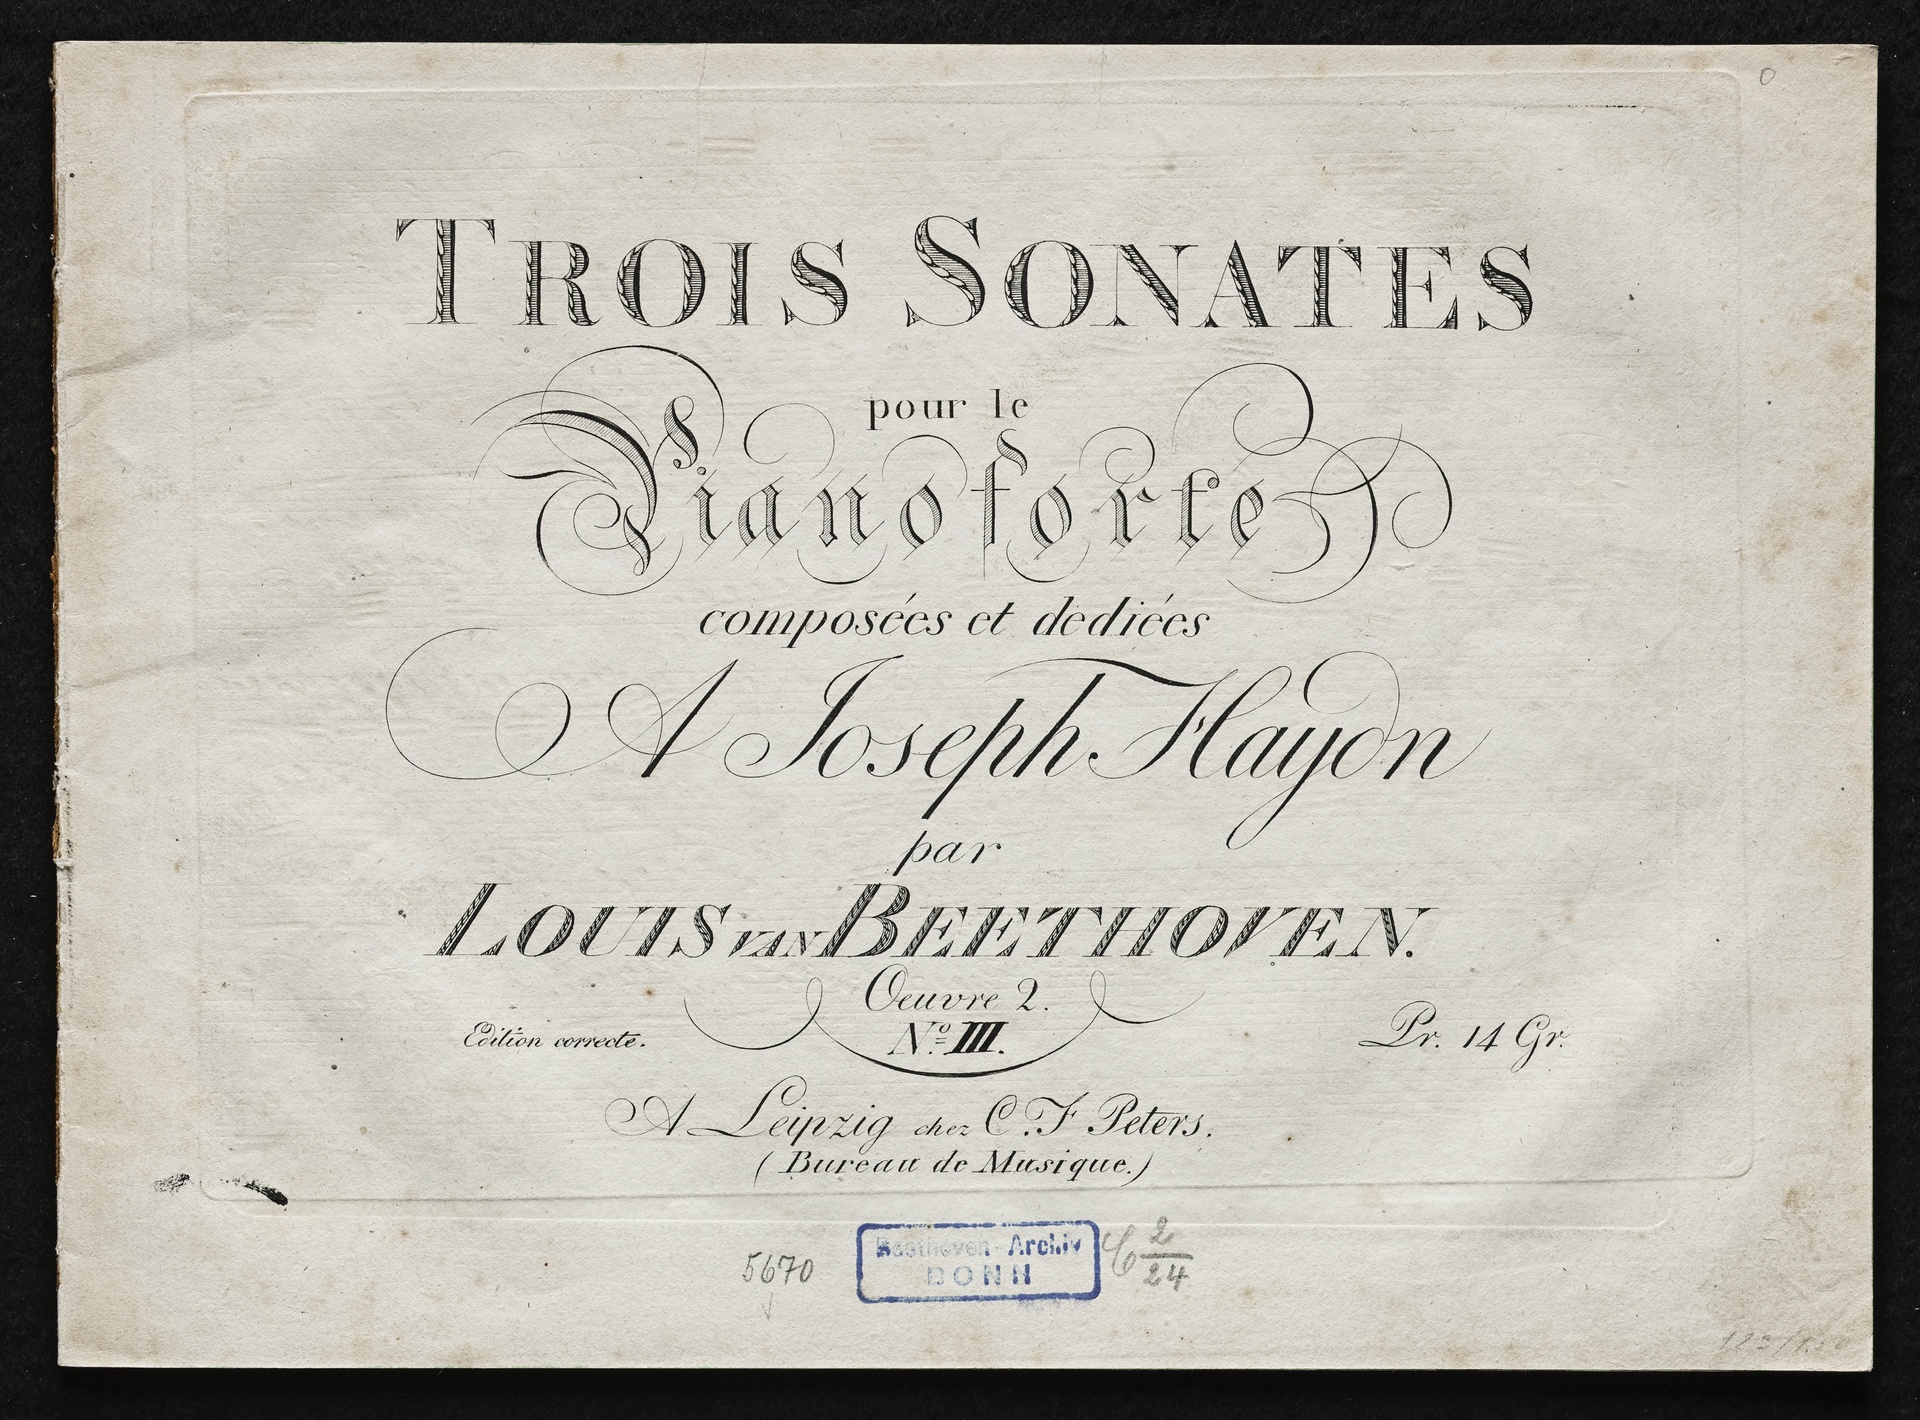 TROIS SONATES
pour le
Pianoforte
composées et dediées
A Joseph Haydn
par
LOUIS VAN BEETHOVEN.
Oeuvre 2.
Edition correcte. No. III. Pr. 14 Gr.
A Leipzig chez C. F. Peters.
(Bureau de Musique.)
5670
Beethoven-Archiv
BONN
C 2/24